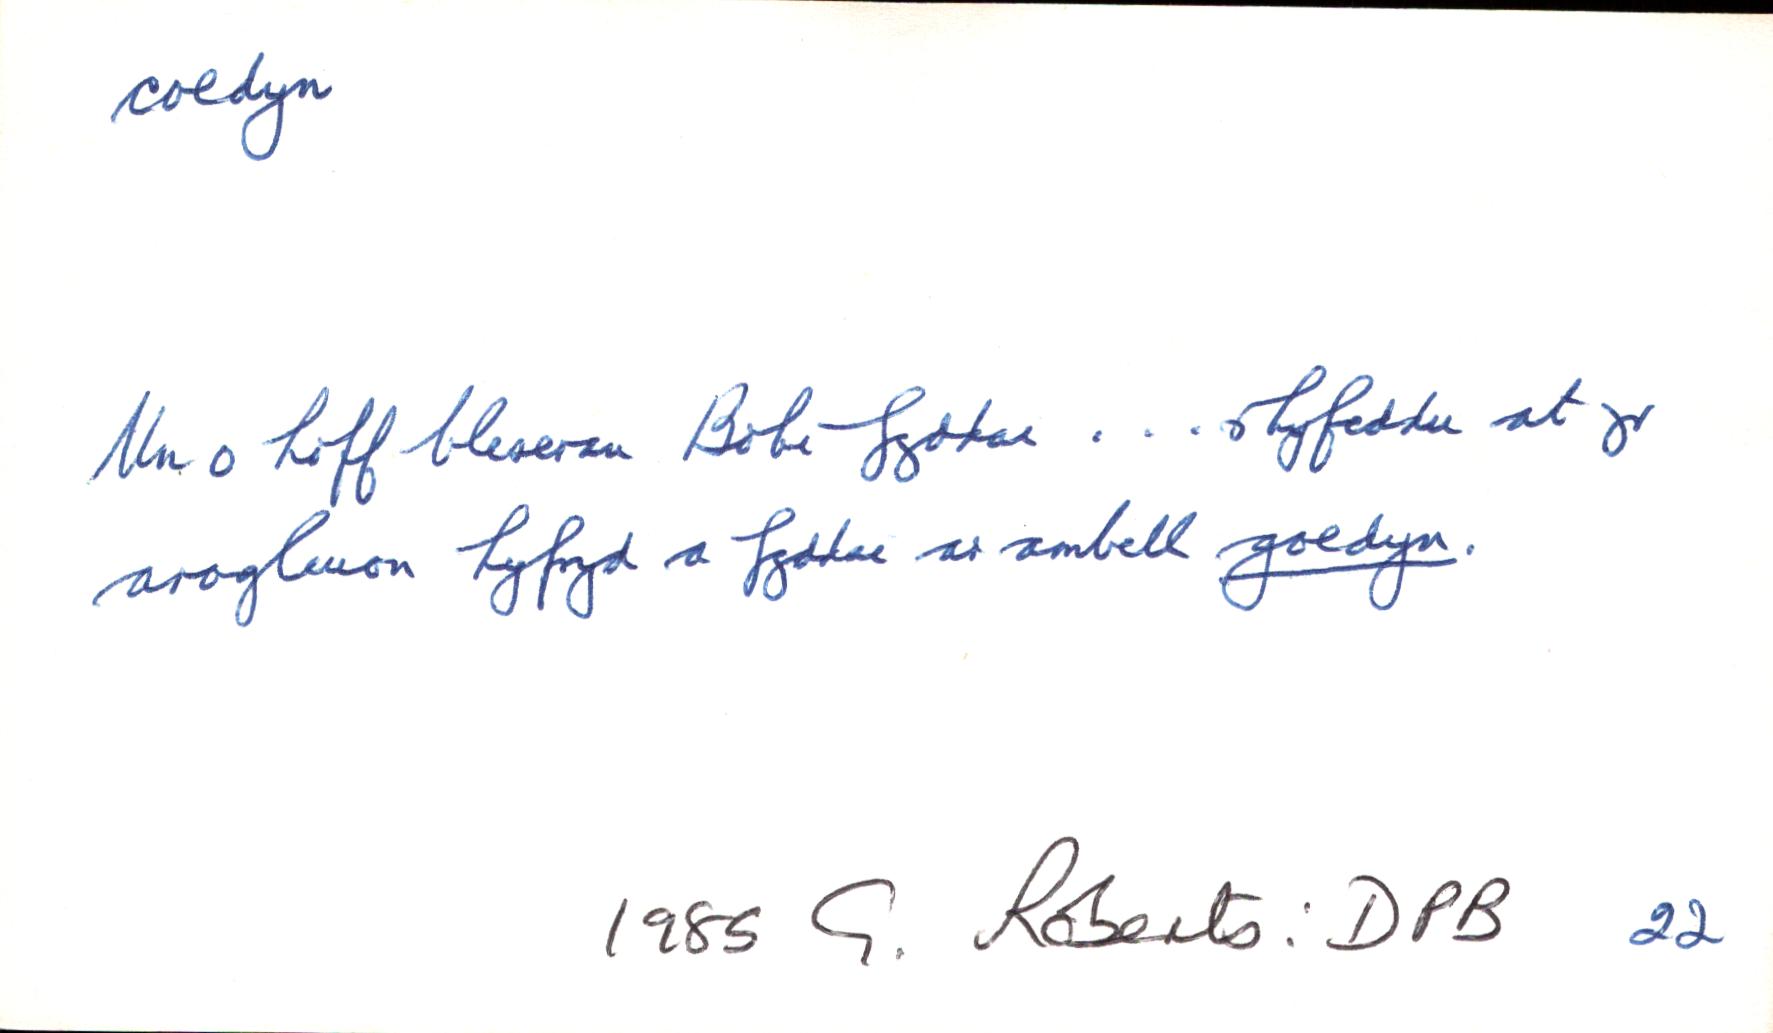 coedyn
Un o hoff bleserau Bobi fyddai . . . rhyfeddu at yr
arogleuon hyfryd a fyddai ar ambell goedyn.
1985 G. Roberts: DPB 22